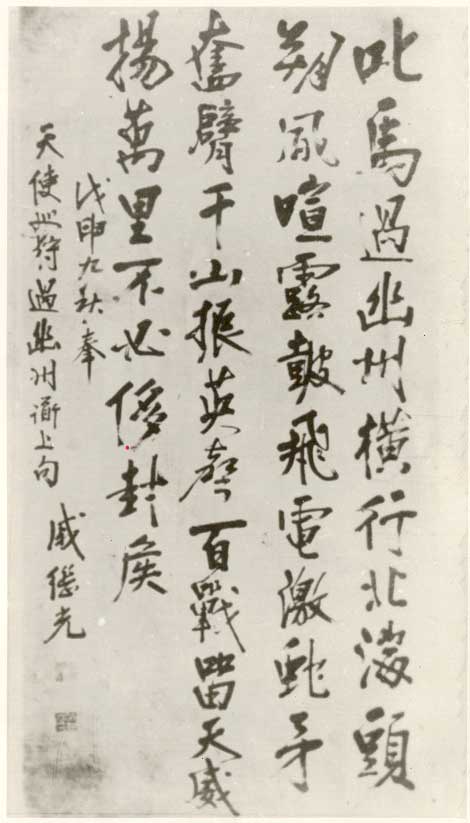 叱馬過幽州橫行北海頭
朔風喧露鼓飛電激虵矛
奮臂千山振英聲百戰畱天威
揚萬里不必侈封侯
戊申九秋奉
天使巡狩過幽州上句
戚繼光